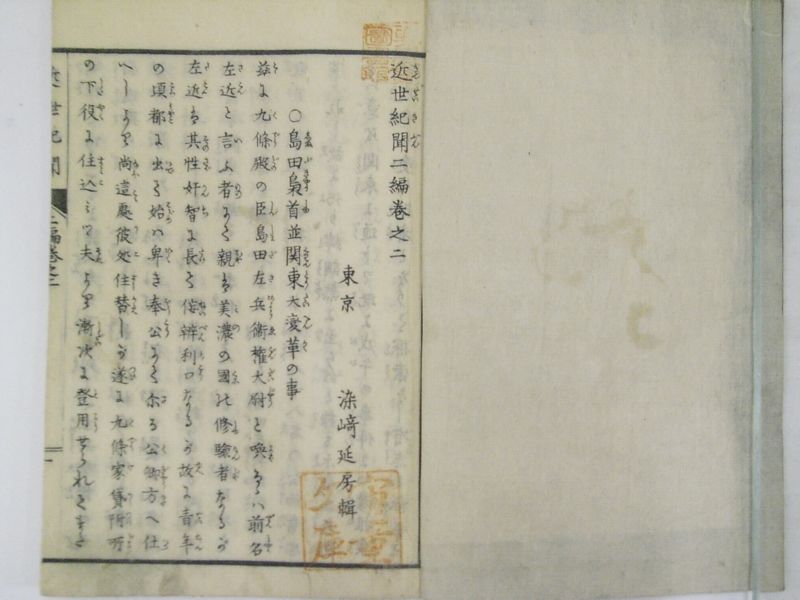 近世紀聞二編巻之二
東京 染﨑延房輯
○島田梟首並関東大変革の事
茲に九條殿の臣島田左兵衛権大尉と喚るハ前名
左近と言ふ者にて親ハ美濃の國の修驗者なるが
左近ハ其性奸智に長て侫辨利口なるが故に青年
の頃都に出て始ハ卑き奉公にて尓る公卿方へ仕
へしより尚這處彼処住替しが遂に九條家貸附所
の下役に住込ミて夫より漸次に登用せられて
近世紀聞 二編巻之二